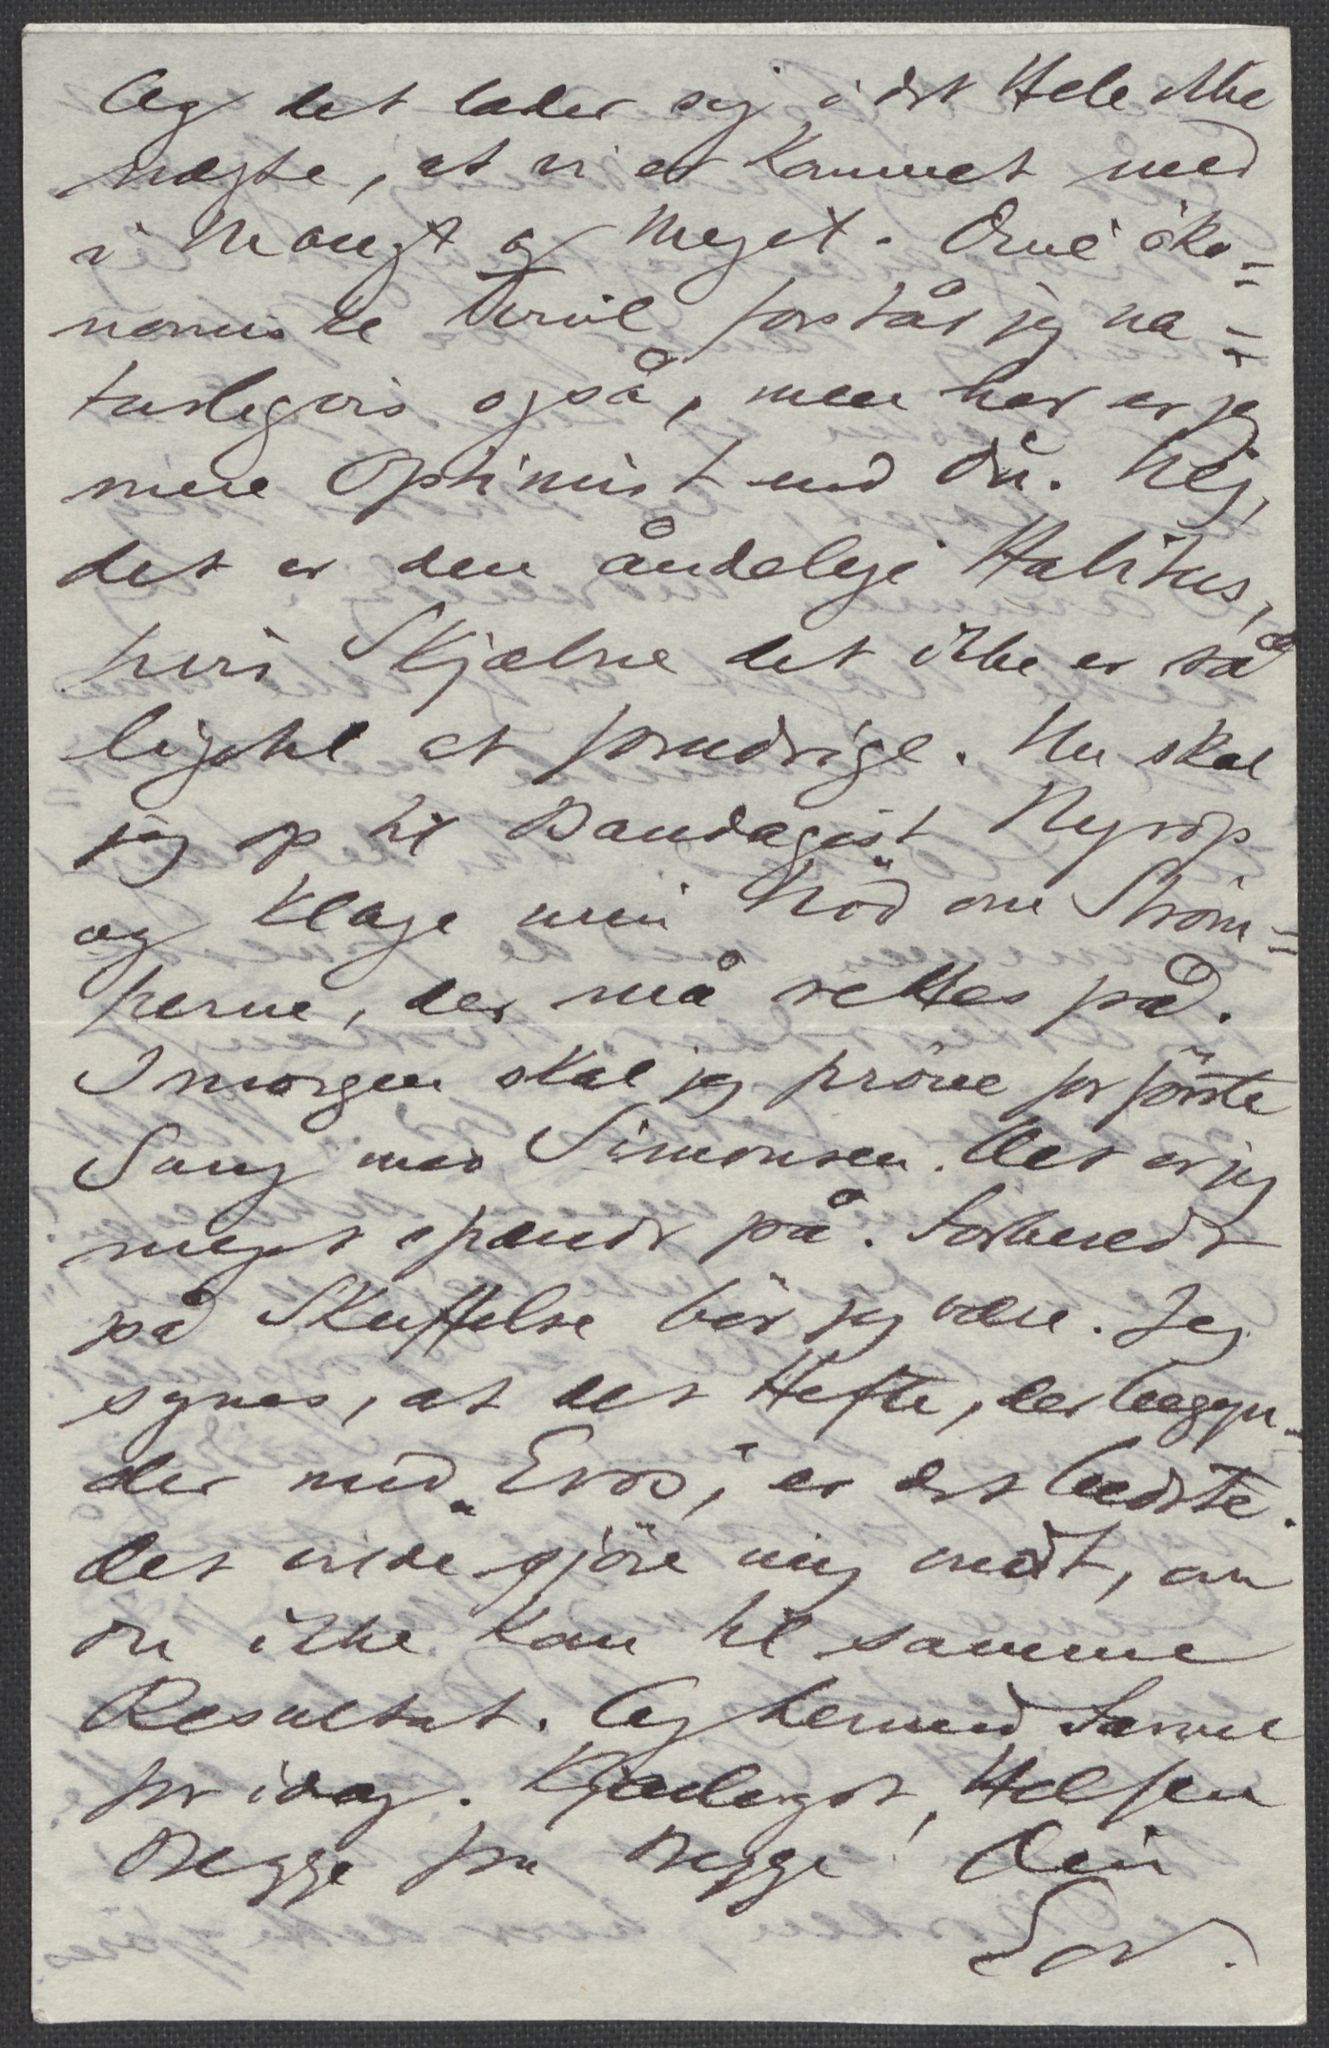 Og det lader sig i det Hele ikke
nægte, at vi er kommet med
i Mangt og Meget. Dine øko=
nomiske Tvivl forstår jeg na=
turligvis også, men her er jeg
mere Optimist end Du. Nej,
det er den åndelige Habitus,
hvis Skjælne det ikke er så
ligetil at forudsige. Nu skal
jeg op til Bandagist Nyrop
og klage min Nöd om Ström=
perne, der må rettes på.
Imorgen skal jeg pröve for förste
Gang med Simonsen. Det er jeg
meget spændt på. Forberedt
på Skuffelse bör jeg være. Jeg
synes, at det Hefte, der begyn=
der med „Eros", er det bedste.
Det vilde gjöre mig ondt, om
Du ikke kom til samme
Resultat. Og hermed Farvel
for idag. Kjærligst, Hilsen
Begge fra Begge! Din
Edv.